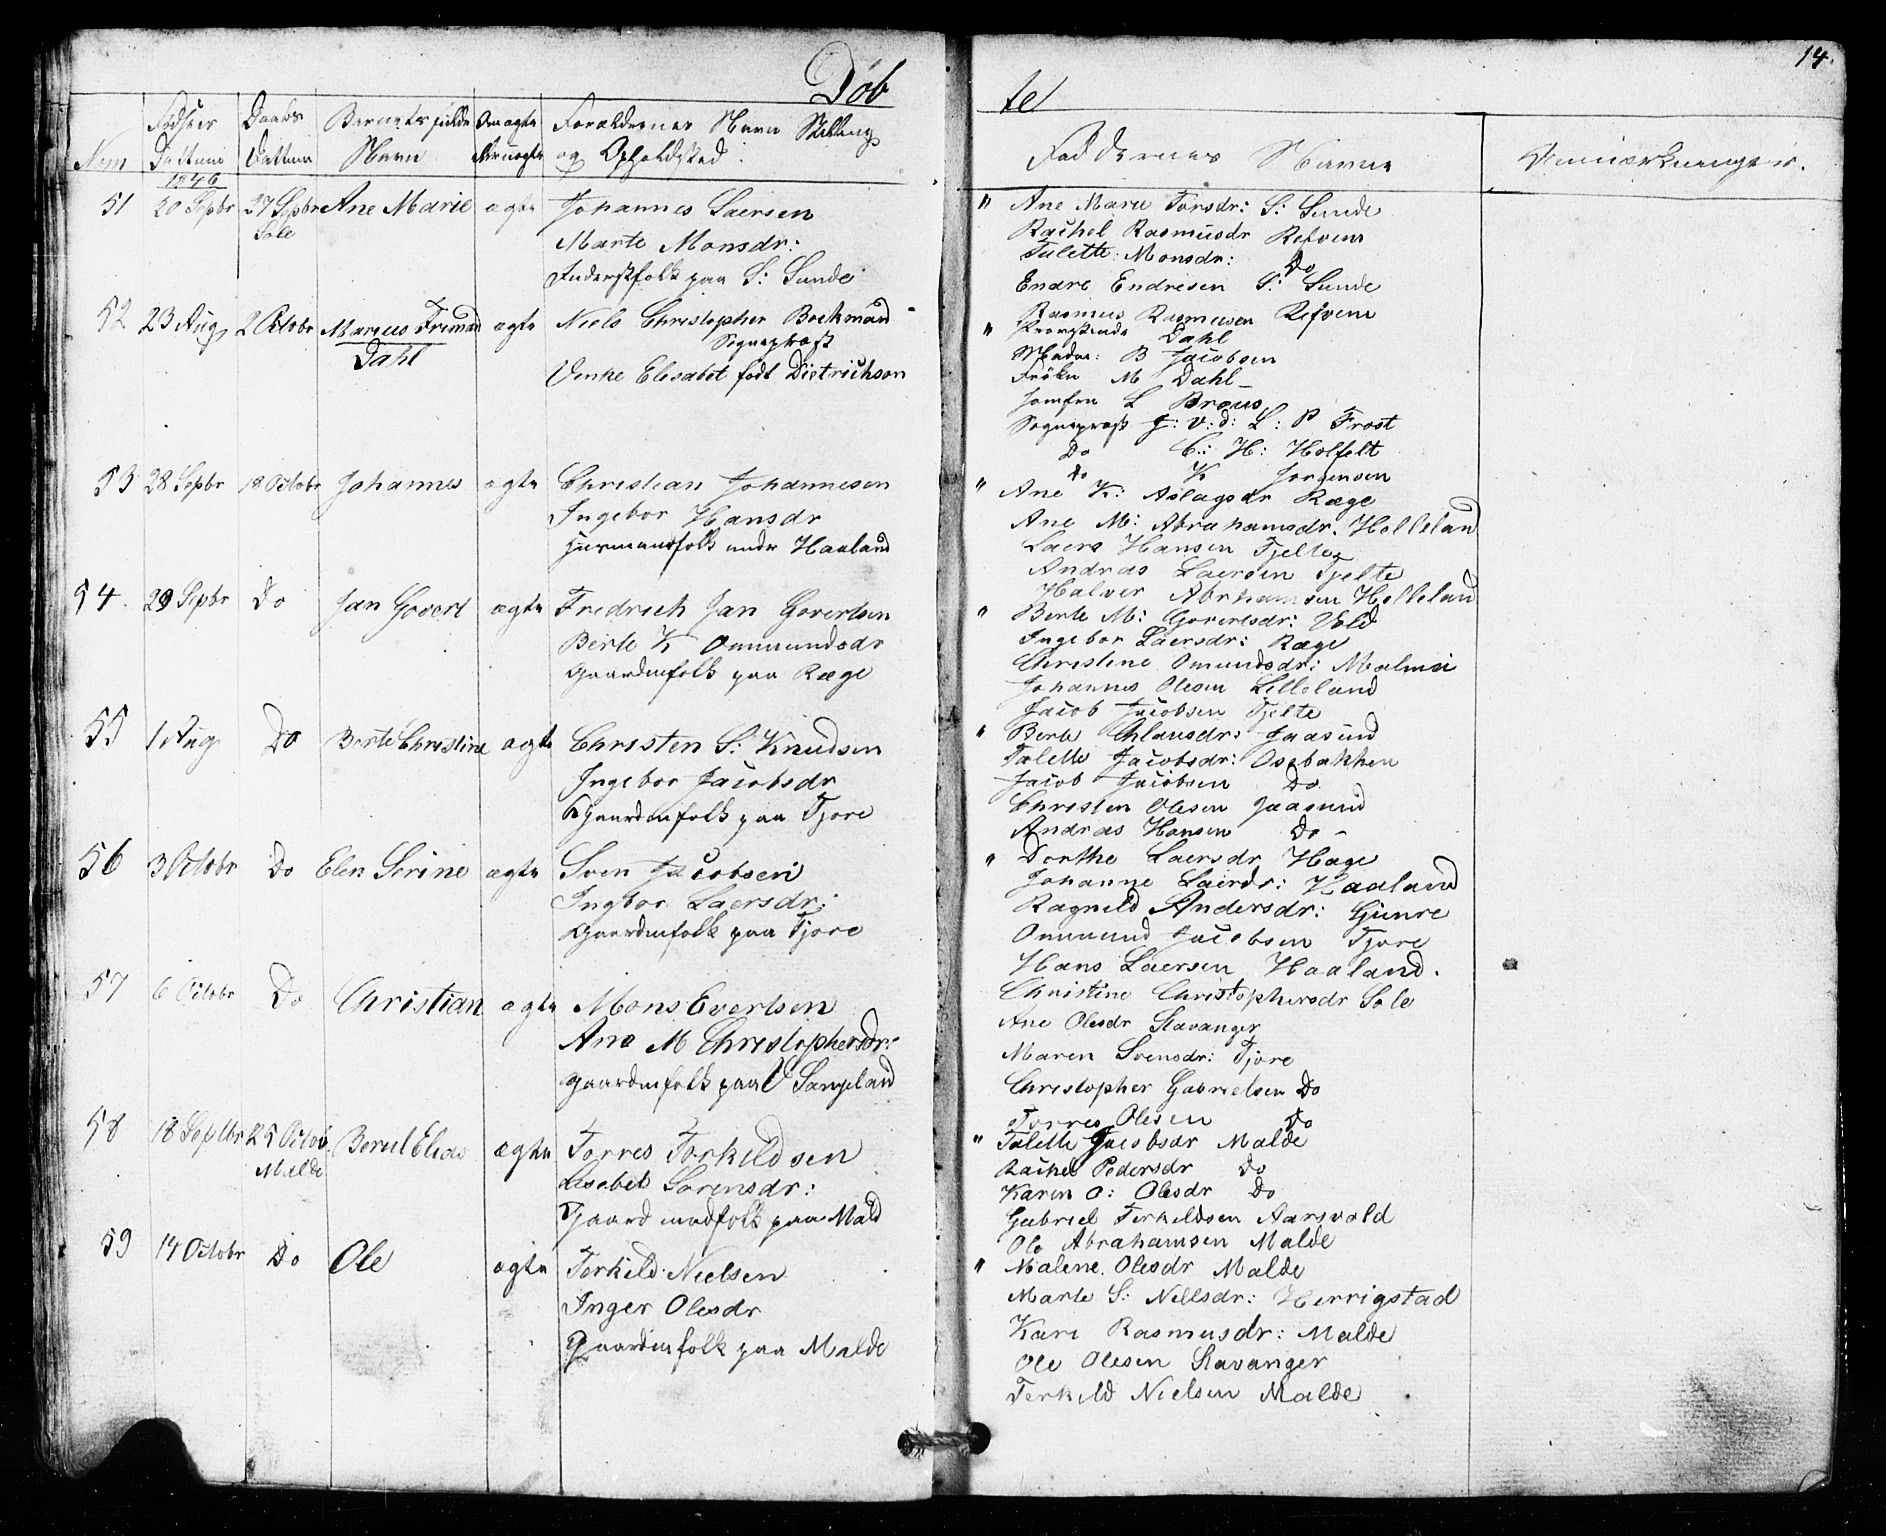 Døb
te
14.
Num
Fødsels Dattum
Daabs Dattum
Barnets fulde Navn
Om ægte eller uægte
Forældrernes Navn Stilling og Opholdsted
Faddernes Navne
Anmærkninger.
1846
51 20 Sepbr 27 Sepbr Sole Ane Marie ægte
Johannes Laersen
Marte Monsdr:
Inderstfolk paa S: Sunde
" Ane Marie Torsdr: S: Sunde
Rachel Rasmusdr Refven
Talette Monsdr: Do
Endre Endresen S: Sunde
Rasmus Rasmusen Refven
52 23 Aug 2 Octobr Dahl ægte
Niels Christopher Bockman
Sognepræst
Venke Elisabet født Dietrichson
" Dahl
Madm: B Jacobsen
Frøken M Dahl
Jomfru L
Sognepræst J: v: d: L: P Frost
Do C: H: Holfelt
Do K Jorgensen
53 28 Sepbr 18 Octobr Johannes ægte
Christian Johannesen
Ingebor Hansdr
Huusmandfolk under Haaland
" Ane K: Aslagsdr Ræge
Ane M: Abrahamsdr. Helleland
Laers Hansen Tjelte
Andras Laersen Tjelte
Halver Abrhamsen Helleland
54. 29 Sepbr Do Jan Govert ægte
Fredrich Jan Govertsen
Berte K Ommundsdr
Gaardmfolk paa Ræge
" Berte M: Govertsdr: Vold
Ingebor Laersdr: Ræge
Christine Omundsdr: Malmei
Johannes Olesen Lilleland
Jacob Jacobsen Tjelte
55 1 Aug Do Berte Christine ægte
Christen S: Knudsen
Ingebor Jacobsdr
Gaardmfolk paa Tjore
" Berte Chlausdr: Jaasund
Talette Jacobsdr: Osebakken
Jacob Jacobsen Do
Christen Olesen Jaasund
Andras Hansen Do
56 3 Octobr Do Elen Serine ægte
Sven Jacobsen
Ingbor Laersdr:
Gaardmfolk paa Tjore
" Dorthe Laersdr Hage
Johanne Laersdr: Haaland
Ragnild Andersdr: Gimre
Ommund Jacobsen Tjore
Hans Laersen Haaland.
57 6 Octobr Do Christian ægte
Mons Evertsen
Ane M Christophersdr:
Gaardmfolk paa V Sangeland
Christine Christophersdr Sole
Ane Olesdr Stavanger
Maren Svensdr: Tjore
Christopher Gabrielsen Do
Torres Olesen Do
58 18 Septbr 25 Octobr Malde Berul Elias ægte
Torres Torkildsen
Lisebet Sorensdr:
Gaardmadfolk paa Mald
" Talette Jacobsdr Malde
Rachel Pedersdr Do
Karen O: Olesdr Do
Gabriel Terkildsen Aarsvold
Ole Abrahamsen Malde
59 14 Octobr Do Ole ægte
Terkild Nielsen
Inger Olesdr
Gaardmfolk paa Malde
" Malene Olesdr Malde
Marte S: Nellsdr: Herrigstad
Kari Rasmusdr: Malde
Ole Olesen Stavanger
Terkild Nielsen Malde